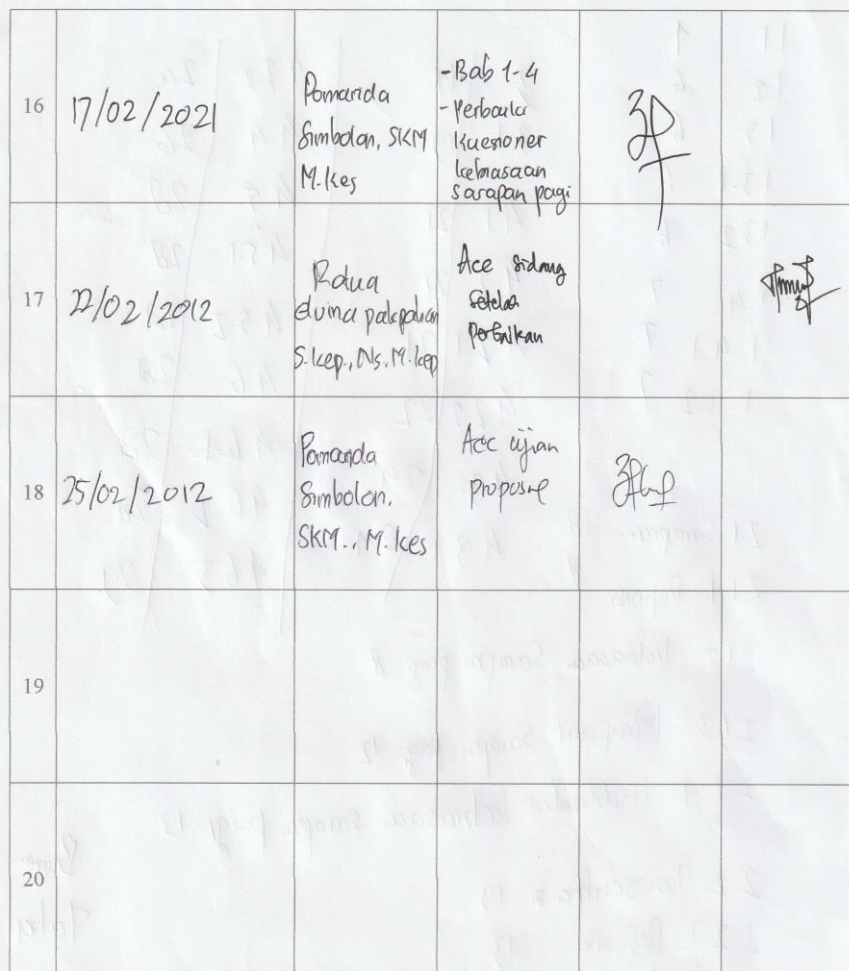 16
17/02/2021
Pomarida
Simbolon, SKM
M.Kes
-Bab 1-4
- Perbaiki
Kuesioner
kebiasaan
sarapan pagi
17
22/02/2012
Rotua
elvina pakpahan
S.kep., Ns, M.kep
Acc sidang
setelah
perbaikan
18
25/02/2012
Pomarida
Simbolon.
SKM., M.kes
Acc ujian
proposal
19
20